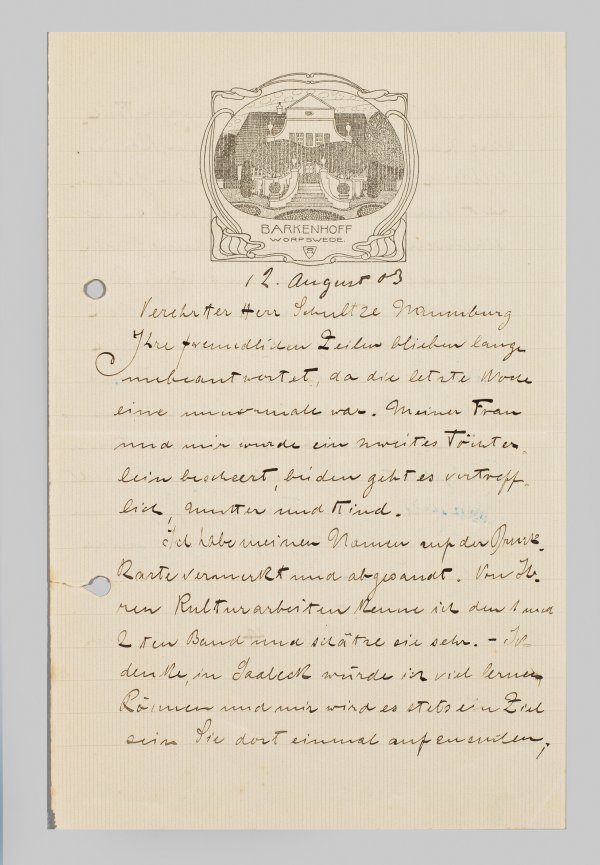 BARKENHOFF
WORPSWEDE.
12. August 03
Verehrter Herr Schultze Naumburg
Ihre freundlichen Zeilen blieben lange
unbeantwortet, da die letzte Woche
eine unnormale war. Meiner Frau
und mir wurde ein zweites Töchter-
lein beschert, beiden geht es vortreff-
lich, Mutter und Kind.
Ich habe meinen Namen auf der
Karte vermerkt und abgesandt. Von Ih-
ren Kulturarbeiten kenne ich den 1 und
2ten Band und schätze sie sehr. – Ich
denke, in Saaleck würde ich viel lernen
können und mir wird es stets ein Ziel
sein Sie dort einmal aufzusuchen,